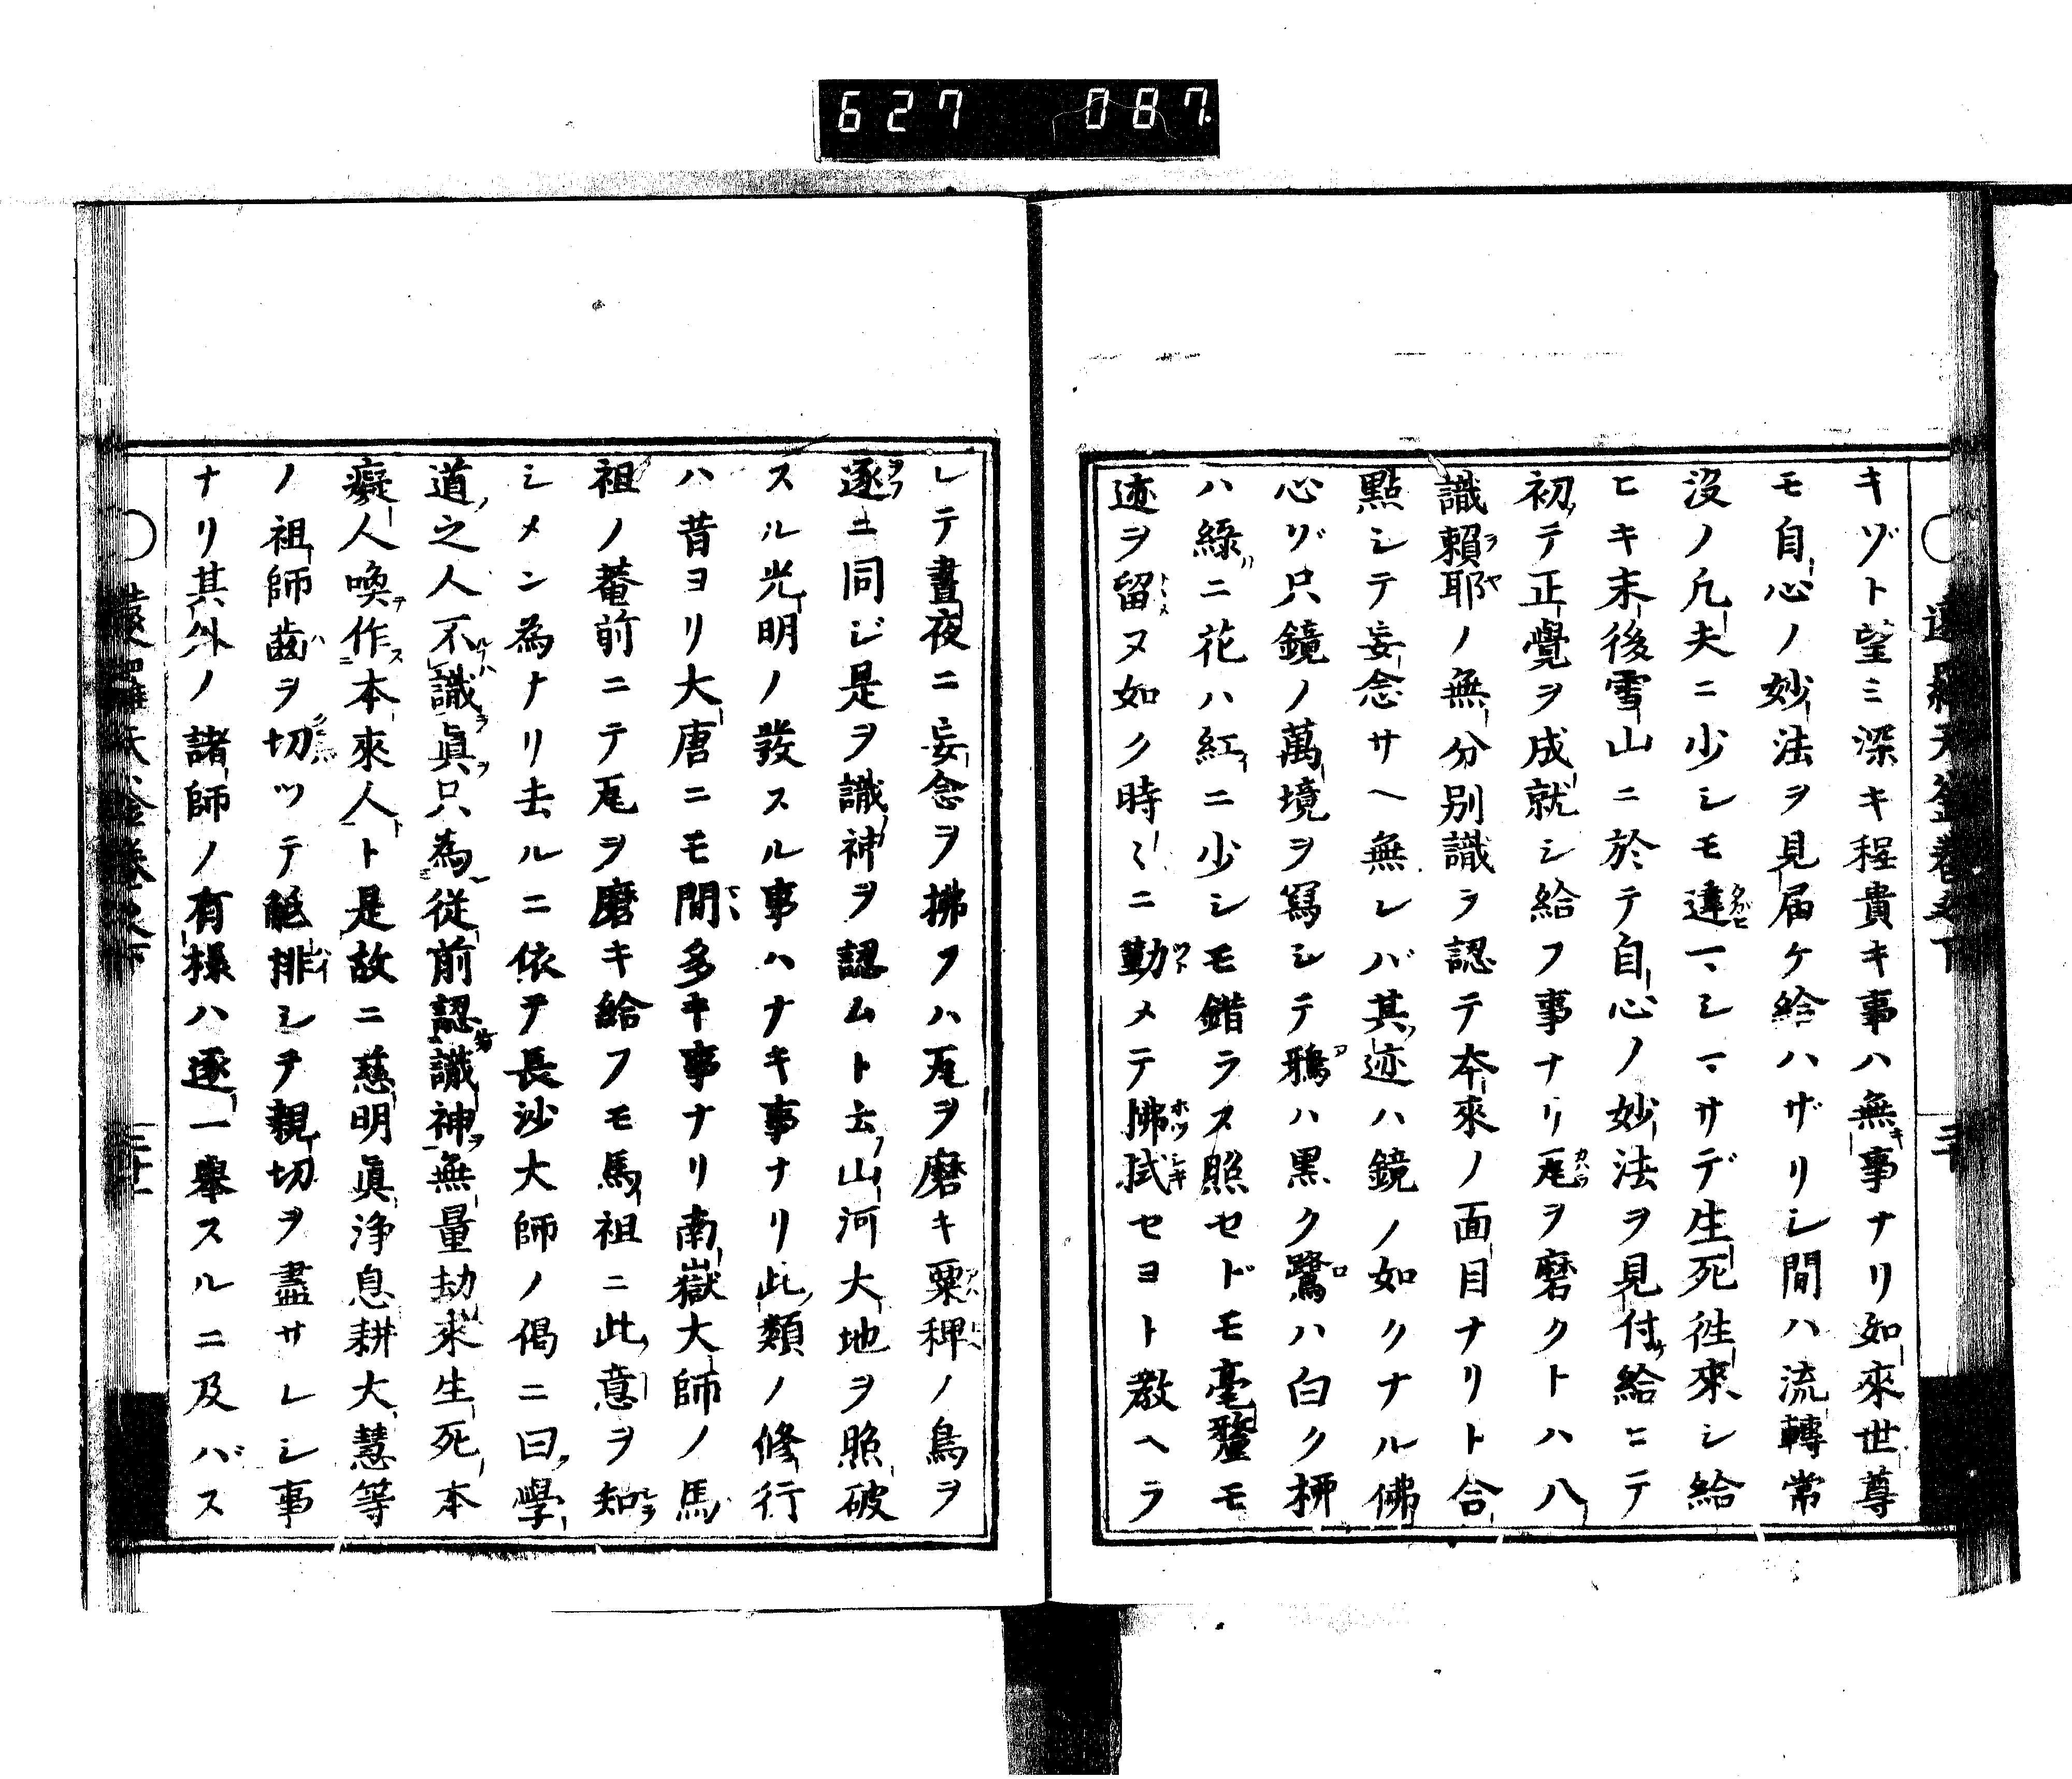 627 087
キヅト望ミ深キ程貴キ事ハ無キ事ナリ如來世尊
モ自心ノ妙法ヲ見届ケ給ハザリシ間ハ流轉常
没ノ凡夫ニ少シモ違マシマサデ生死徃來シ給
ヒキ末後雪山ニ於テ自心ノ妙法ヲ見付ケ給ヒテ
初テ正覺ヲ成就シ給フ事ナリ瓦ヲ磨クトハ八
識頼耶ノ無分別識ヲ認テ本來ノ面目ナリト合
點シテ妄念サヘ無レバ其迹ハ鏡ノ如クナル佛
心ゾ只鏡ノ萬境ヲ寫シテ鴉ハ黒ク鷺ハ白ク柳
ハ緑ニ花ハ紅ニ少シモ錯ラス照セドモ毫釐モ
迹ヲ留ヌ如ク時〻ニ勤メテ拂拭セヨト教ヘラ
レテ晝夜ニ妄念ヲ拂フハ瓦ヲ磨キ粟稗ノ鳥ヲ
逐ニ同ジ是ヲ識神ヲ認ムト云山河大地ヲ照破
スル光明ノ發スル事ハナキ事ナリ此類ノ修行
ハ昔ヨリ大唐ニモ間多キ事ナリ南嶽大師ノ馬
祖ノ菴前ニテ瓦ヲ磨キ給フモ馬祖ニ此意ヲ知
シメン為ナリ去ルニ依テ長沙大師ノ偈ニ曰學
道之人不識眞只為從前認識神無量劫來生死本
癡人喚作本來人ト是故ニ慈明眞浄息耕大慧等
ノ祖師齒ヲ切ツテ觝排シテ親切ヲ盡サレシ事
ナリ其外ノ諸師ノ有様ハ逐一舉スルニ及バス